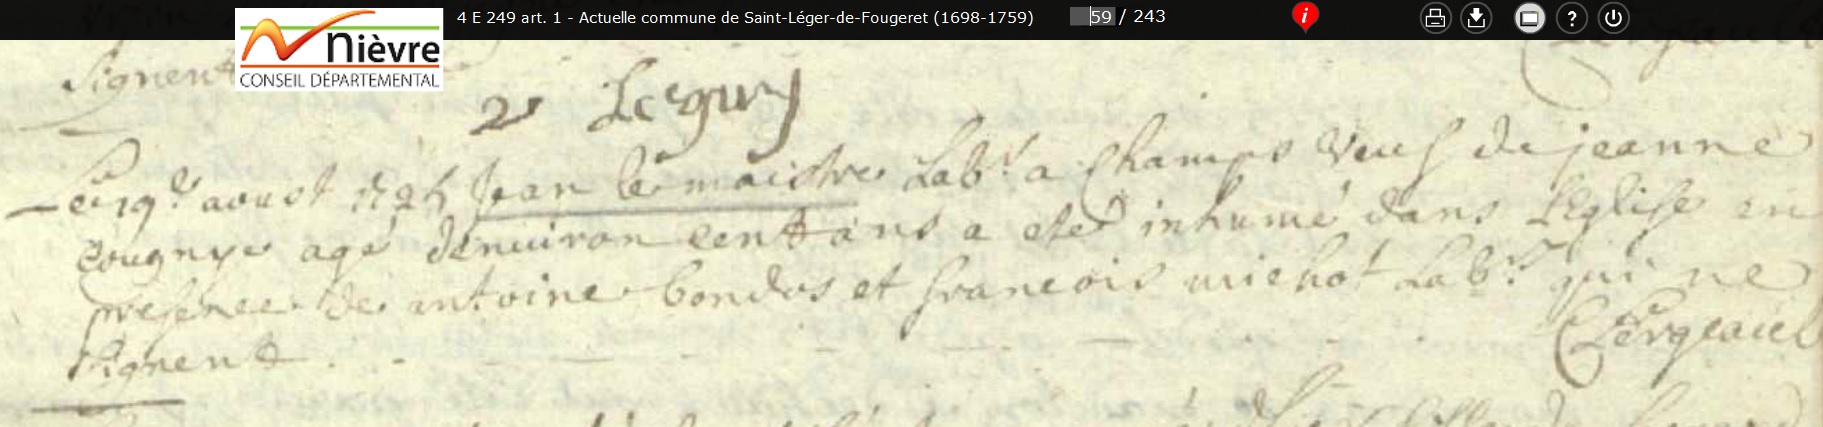 4 E 249 art. 1 - Actuelle commune de Saint-Léger-de-Fougeret (1698-1759) 59 / 243
nièvre
CONSEIL DÉPARTEMENTAL
signent
Le cinq.e aoust Jean le maistre Lab.r a Champs veuf de jeanne
cougnye agé denuiron cent ans a eté inhumé dans L'Eglise en
presence de antoine bondos et francois michot Lab.rs qui ne
signent